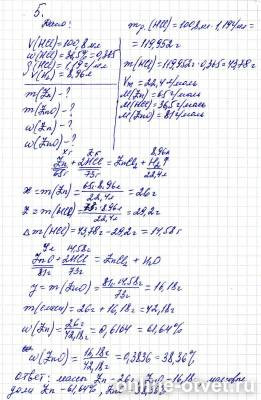 5.
Дано:
V(HCl)=100,8 мл
ω(HCl)=36,5%=0,365
ρ(HCl)=1,19 г/мл
V(H₂)=8,96 л
m(Zn)-?
m(ZnO)-?
ω(Zn)-?
ω(ZnO)-?
mр.(HCl)=100,8 мл·1,19 г/мл=
=119,952 г
m(HCl)=119,952 г·0,365=43,78 г
Vm=22,4 л/моль
M(Zn)=65 г/моль
M(HCl)=36,5 г/моль
M(ZnO)=81 г/моль
xг zг 8,96л
Zn+2HCl=ZnCl₂+H₂↑
65г 73г 22,4л
x=m(Zn)=65г·8,96л/22,4л=26г
z=m(HCl)=73г·8,96л/22,4л=29,2г
Δm(HCl)=43,78г-29,2г=14,58г
yг 14,58г
ZnO+2HCl=ZnCl₂+H₂O
81г 73г
y=m(ZnO)=81г·14,58г/73г=16,18г
m(смеси)=26г+16,18г=42,18г
ω(Zn)=26г/42,18г=0,6164=61,64%
ω(ZnO)=16,18г/42,18г=0,3836=38,36%
ответ: массы Zn-26г, ZnO-16,18г массовые
доли Zn-61,64%, ZnO-38,36%
online-otvet.ru